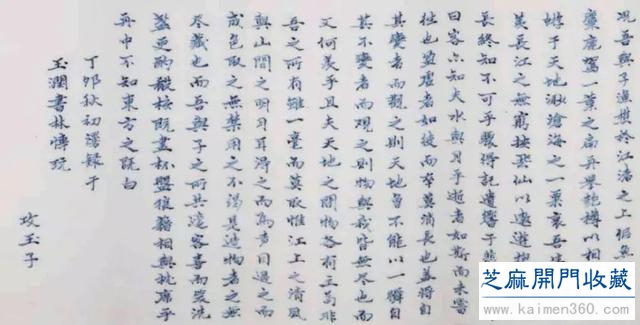 况吾與子漁樵於江渚之上侣魚
麋鹿駕一葉之扁舟舉匏樽以相
蝣于天地渺滄海之一粟哀吾生
羡長江之無窮挾飛仙以遨遊抱
長終知不可乎驟得託遺響于悲
曰客亦知夫水與月乎逝者如斯而未嘗
往也盈虛者如彼而卒莫消長也蓋將自
其變者而觀之則天地曾不能以一瞬自
其不變者而觀之則物與我皆無尽也而
又何羨乎且夫天地之間物各有主苟非
吾之所有雖一毫而莫取惟江上之清風
與山間之明月耳得之而為聲目遇之而
成色取之無禁用之不竭是造物者之無
尽藏也而吾與子之所共適客喜而笑洗
盞更酌殽核既盡杯盤狼籍相與枕席乎
舟中不知東方之既白
丁卯秋初潘錄于
玉潤書林博玩
攻玉子
芝麻開門收藏
www.kaimen360.com